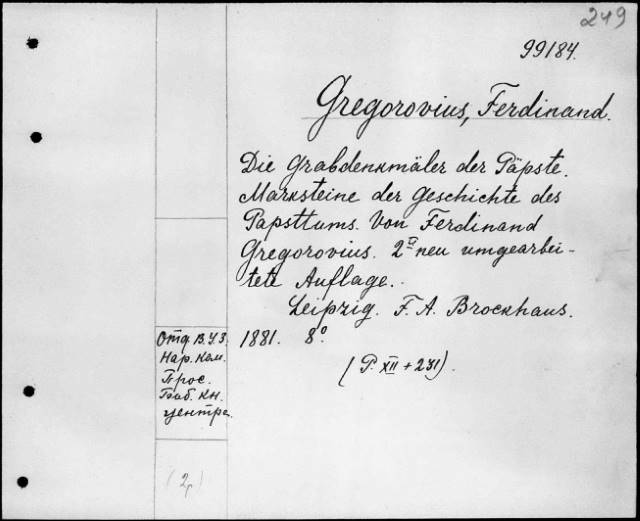 249
99184.
Gregorovius, Ferdinand.
Die Grabdenkmäler der Päpste.
Marksteine der Geschichte des
Papsttums. Von Ferdinand
Gregorovius. 2ᵃ neu umgearbei-
tete Auflage.
Leipzig. F. A. Brockhaus.
1881. 8º.
(P. XII + 231).
Отд. В.У.З.
Нар. Ком.
Прос.
Баб. кн.
центра.
(2р)